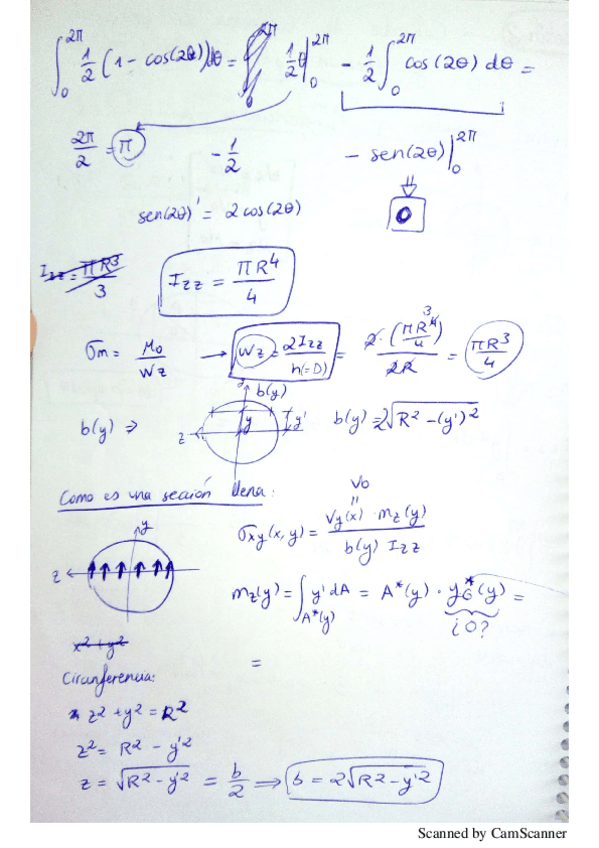 ∫₀^{2π} 1/2 (1 - cos(2θ))dθ = 1/2 θ|₀^{2π} - 1/2 ∫₀^{2π} cos(2θ) dθ =
2π/2 = π - 1/2 - sen(2θ)|₀^{2π}
⇓
0
sen(2θ)' = 2cos(2θ)
Izz = πR³/3 Izz = πR⁴/4
σm = M₀/Wz → Wz = 2Izz/h(=D) = 2·(πR⁴/4)/2R = πR³/4
3
y b(y)
b(y) ⇒ z y y' b(y) = 2√(R² - (y')²)
Como es una sección llena:
V₀
"
y σxy(x,y) = Vy(x) · mz(y) / b(y) Izz
z
mz(y) = ∫_{A*(y)} y' dA = A*(y) · yG*(y) =
¿0?
x² + y²
=
Cirunferencia:
z² + y² = R²
z² = R² - y'²
z = √(R² - y'²) = b/2 ⟹ b = 2√(R² - y'²)
Scanned by CamScanner